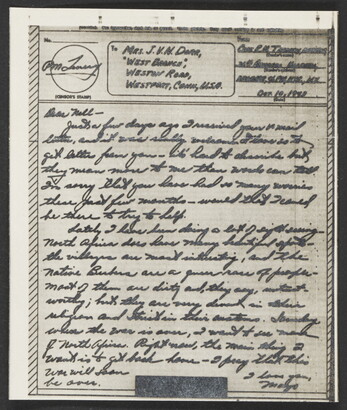 No.
To
Mrs. J.V.H. Dorr,
"West Branch",
Weston Road,
Westport, Conn, U.S.A.
(CENSOR'S STAMP)
Dear Nell —
Just a few days ago I received your V-mail
letter, and it was really welcome. I love to
get letters from you — it's hard to describe but
they mean more to me than words can tell
I'm sorry that you have had so many worries
these past few months — would that I could
be there to try to help.
Lately I have been doing a lot of sight seeing —
North Africa does have many beautiful spots —
the villages are most interesting, and the
native Berbers are a queer race of people —
most of them are dirty and, they say, untrust-
worthy; but they are very devout in their
religion and strict in their customs. Someday
when the war is over, I want to see more
of North Africa. Right now, the main thing I
want is to get back home — I pray that this
war will soon
be over.
I love you,